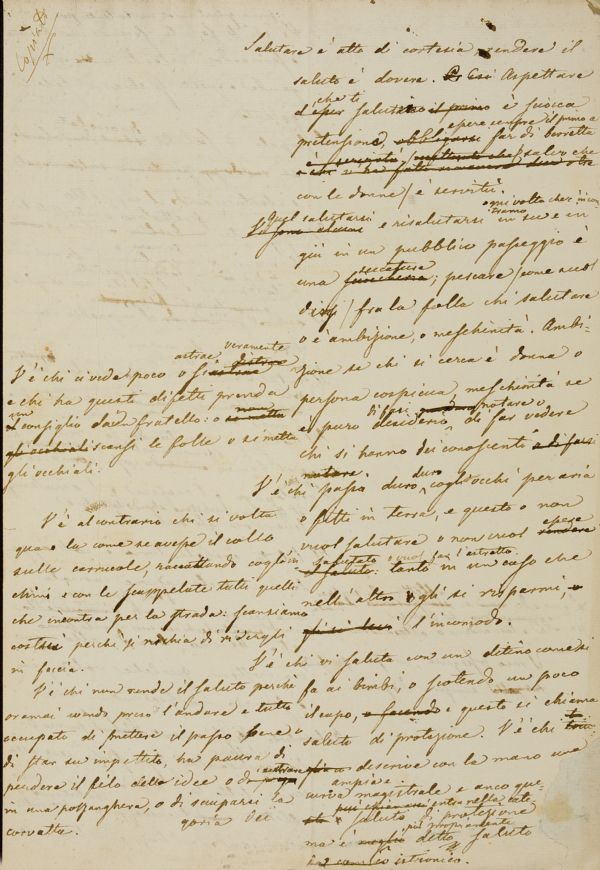 Copiato
Salutare è atto di cortesia, rendere il
saluto è dovere. Aspettare
che ti
d'esser salutato il primo è sciocca
esser sempre il primo a
pretensione, obbligarsi far di berretta
salvo che
con le donne / è servitù.
Quel salutarsi ogni volta che s'incon
e risalutarsi trano in su e in
giù in un pubblico passeggio è
seccatura
una ; pescare / come suol
dirsi / fra la folla chi salutare
o è ambizione, o meschinità. Ambi-
zione se chi si cerca è donna o
persona cospicua, meschinità se
è puro desiderio di far vedere
chi si hanno dei conoscenti o di farsi
notare.
duro
V'è chi passa duro cogli occhi per aria
o fitti in terra, e questo o non
vuol salutare o non vuol essere
salutato o vuol far l'astratto.
il saluto. tanto in un caso che
nell'altro gli si risparmi
l'incomodo.
V'è chi vi saluta con un ditino come si
fa ai bimbi, o scotendo un poco
il capo, o facendo e questo si chiama
saluto di protezione. V'è chi
descrive con la mano una
ampia e
curva magistrale e anco que-
sto entra nella cate-
goria dei saluto di protezione
più propriamente
ma è meglio detto saluto
istrionico.
veramente
astrae distrae
V'è chi ci vede poco o si
e chi ha questi difetti prenda
un
consiglio da un fratello: o non
gli occhiali scansi le folle o si metta
gli occhiali.
V'è al contrario chi si volta
qua e là come se avesse il collo
sulle carrucole, raccattando cogl'in
chini e con le scappellate tutti quelli
che incontra per la strada: scansiamo
costui perchè si rischia di ridergli
in faccia.
V'è chi non rende il saluto perchè
oramai avendo preso l'andare e tutto
occupato di mettere il passo bene o
di star su impettito, ha paura di
perdere il filo delle idee o d'entrare
in una pozzanghera, o di sciuparsi la
corvatta.